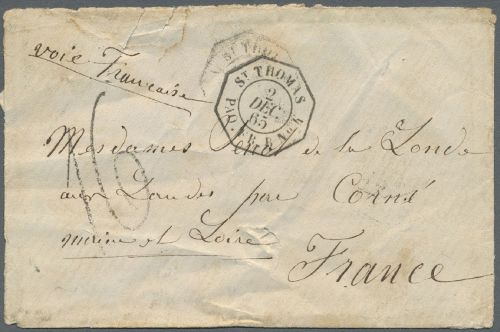 voie Française
ST THOMAS
2
DEC
65
PAQ. FR. B No
16
Mesdames de la Londe
aux Landes par Corné
maine et Loire
France